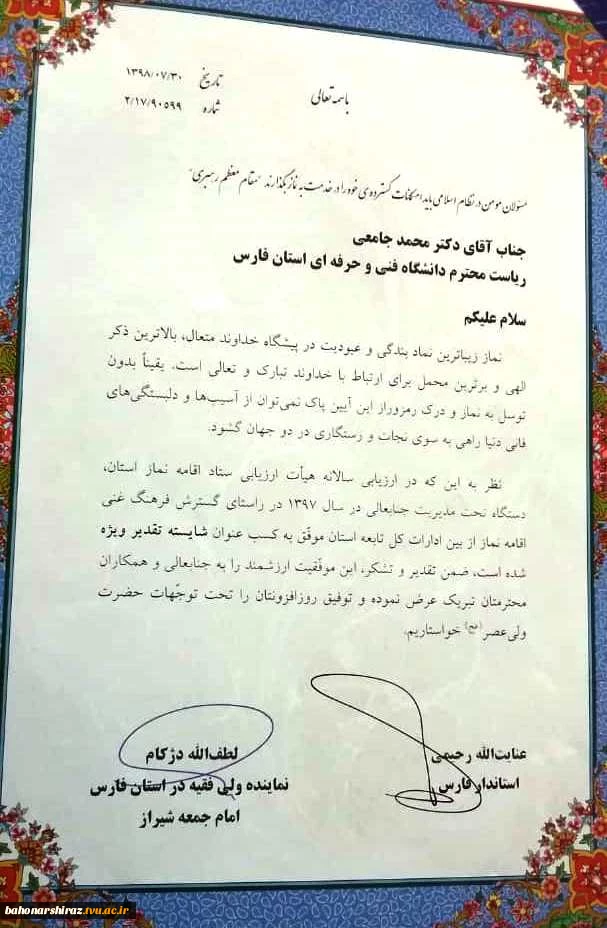 باسمه تعالی
تاریخ ۱۳۹۸/۰۷/۳۰
شماره ۲/۱۷/۹۰۵۹۹
مسئولان مومن در نظام اسلامی باید امکانات گسترده‌ی خود را در خدمت به نماز بگذارند "مقام معظم رهبری"
جناب آقای دکتر محمد جامعی
ریاست محترم دانشگاه فنی و حرفه ای استان فارس
سلام علیکم
نماز زیباترین نماد بندگی و عبودیت در پیشگاه خداوند متعال، بالاترین ذکر
الهی و برترین محمل برای ارتباط با خداوند تبارک و تعالی است. یقیناً بدون
توسل به نماز و درک رمزوراز این آیین پاک نمی‌توان از آسیب‌ها و دلبستگی‌های
فانی دنیا راهی به سوی نجات و رستگاری در دو جهان گشود.
نظر به این که در ارزیابی سالانه هیأت ارزیابی ستاد اقامه نماز استان،
دستگاه تحت مدیریت جنابعالی در سال ۱۳۹۷ در راستای گسترش فرهنگ غنی
اقامه نماز از بین ادارات کل تابعه استان موفّق به کسب عنوان شایسته تقدیر ویژه
شده است، ضمن تقدیر و تشکر، این موفّقیت ارزشمند را به جنابعالی و همکاران
محترمتان تبریک عرض نموده و توفیق روزافزونتان را تحت توجّهات حضرت
ولی‌عصر(عج) خواستاریم.
عنایت‌الله رحیمی
استاندار فارس
لطف‌الله دژکام
نماینده ولی فقیه در استان فارس
امام جمعه شیراز
bahonarshiraz.tvu.ac.ir